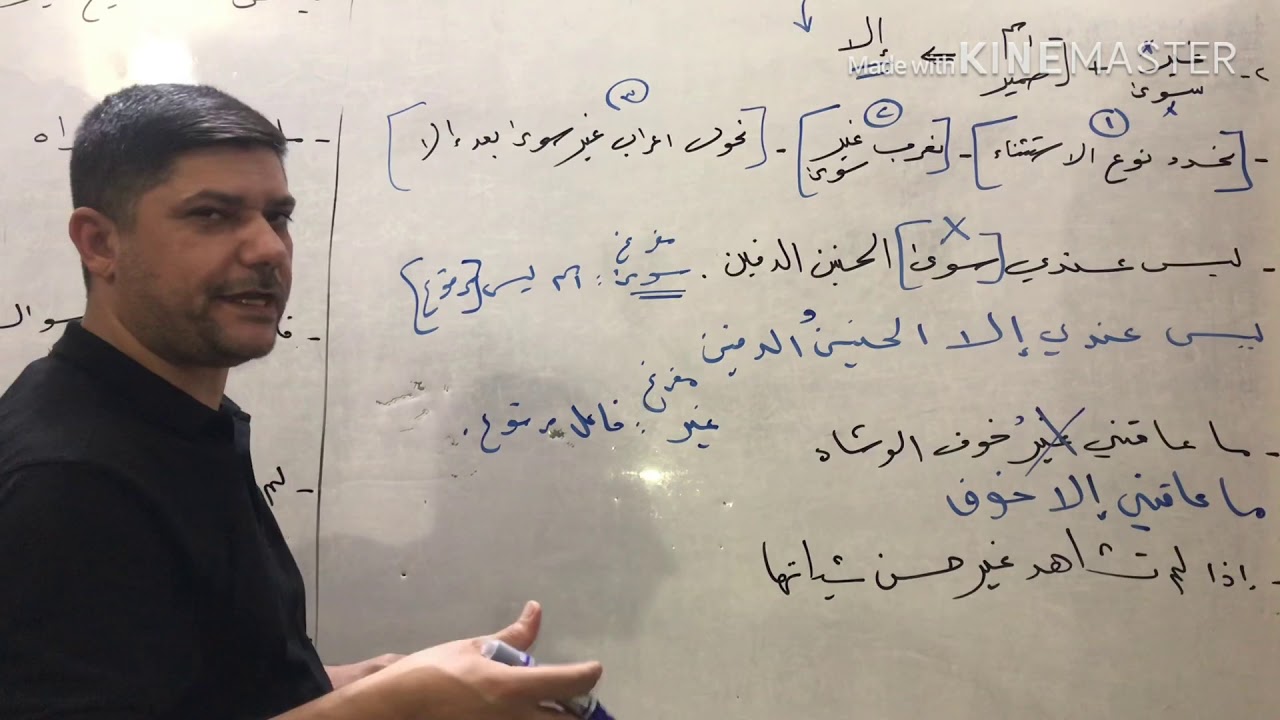 ٢- غير + [اسم ضمير] ⇐ إلا
سوى
Made with KINEMASTER
- [نحدد نوع الاستثناء] ① - [نعرب غير سوى] ② - [نحول اعراب غير سوى بعد إلا] ③
- ليس عندي [سوى] الحنين الدفين . سوى : اسم ليس [مرفوع]
مفرغ
ليس عندي إلا الحنينُ الدفين
مفرغ
غير : فاعل مرفوع .
- ما عاقني غيرُ خوف الوشاه
ما عاقني إلا خوف
- إذا لم تشاهد غير حسن شياتها